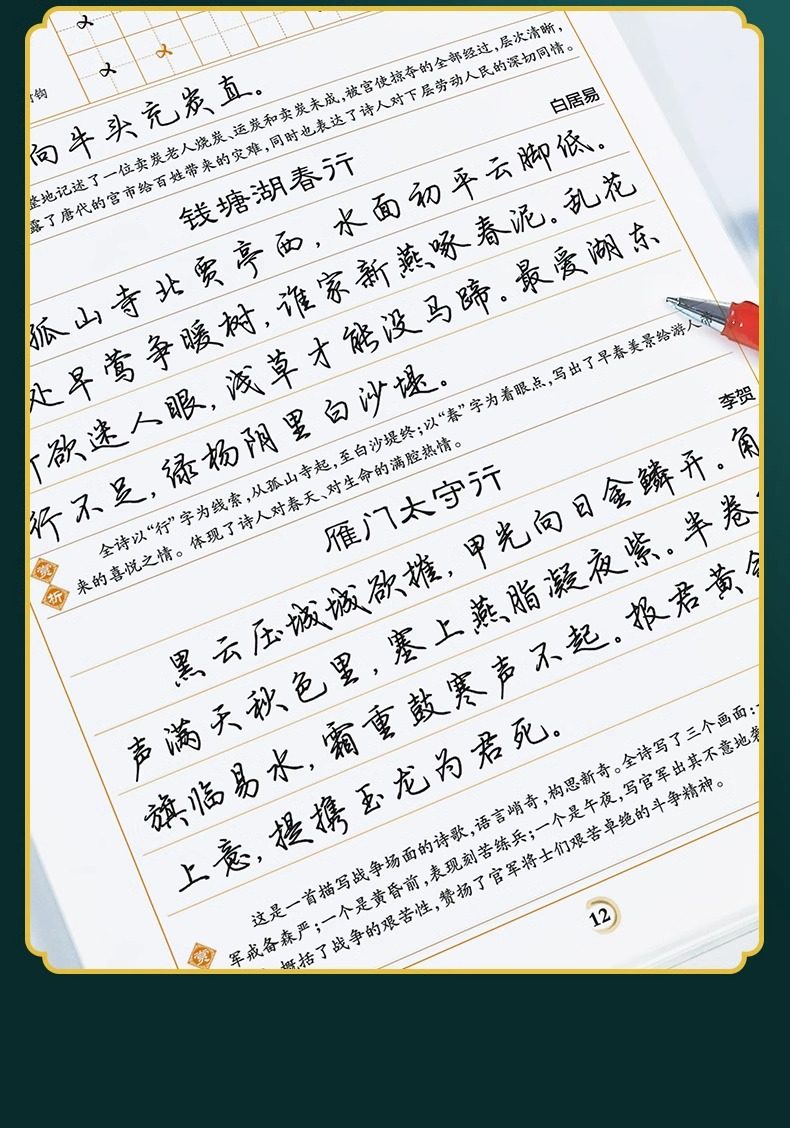 钩
向牛头充炭直。
整地记述了一位卖炭老人烧炭、运炭和卖炭未成,被宫使掠夺的全部经过,层次清晰,
露了唐代的宫市给百姓带来的灾难,同时也表达了诗人对下层劳动人民的深切同情。
钱塘湖春行
白居易
孤山寺北贾亭西,水面初平云脚低。
处早莺争暖树,谁家新燕啄春泥。乱花
欲迷人眼,浅草才能没马蹄。最爱湖东
行不足,绿杨阴里白沙堤。
全诗以“行”字为线索,从孤山寺起,至白沙堤终;以“春”字为着眼点,写出了早春美景给游人带
来的喜悦之情。体现了诗人对春天、对生命的满腔热情。
赏析
雁门太守行
李贺
黑云压城城欲摧,甲光向日金鳞开。角
声满天秋色里,塞上燕脂凝夜紫。半卷
旗临易水,霜重鼓寒声不起。报君黄金
上意,提携玉龙为君死。
这是一首描写战争场面的诗歌,语言峭奇,构思新奇。全诗写了三个画面:
军戒备森严;一个是黄昏前,表现刻苦练兵;一个是午夜,写官军出其不意地袭
概括了战争的艰苦性,赞扬了官军将士们艰苦卓绝的斗争精神。
赏
12